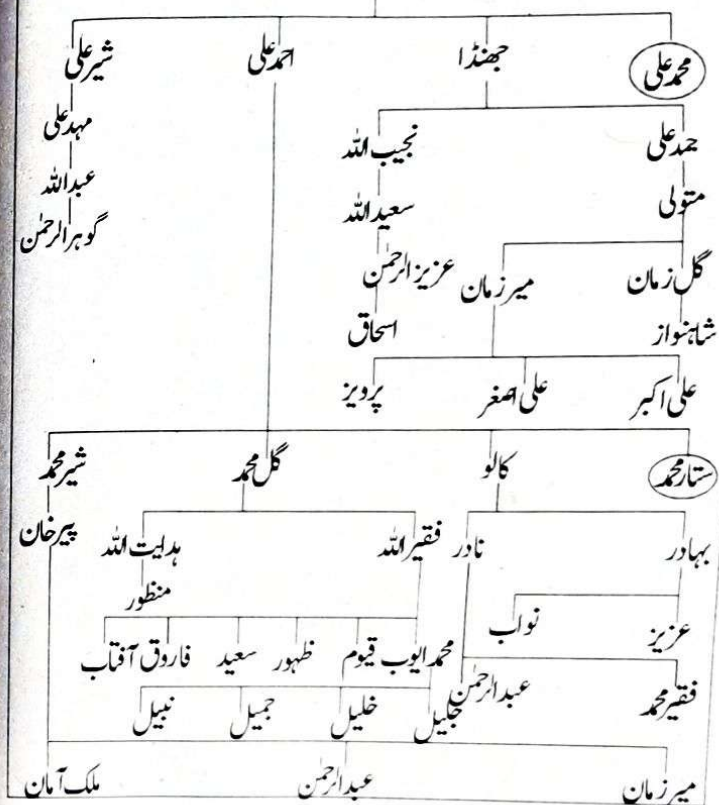 محمد علی جھنڈا احمد علی شیر علی
حمد علی نجیب اللہ مہد علی
متولی سعید اللہ عبداللہ
گل زمان میر زمان عزیز الرحمٰن گوہر الرحمٰن
شاہنواز اسحاق
علی اکبر علی اصغر پرویز
ستار محمد کالو گل محمد شیر محمد
بہادر نادر فقیر اللہ ہدایت اللہ پیر خان
عزیز نواب منظور
محمد ایوب قیوم ظہور سعید فاروق آفتاب
فقیر محمد عبدالرحمٰن جلیل خلیل جمیل نبیل
میر زمان عبدالرحمٰن ملک آمان